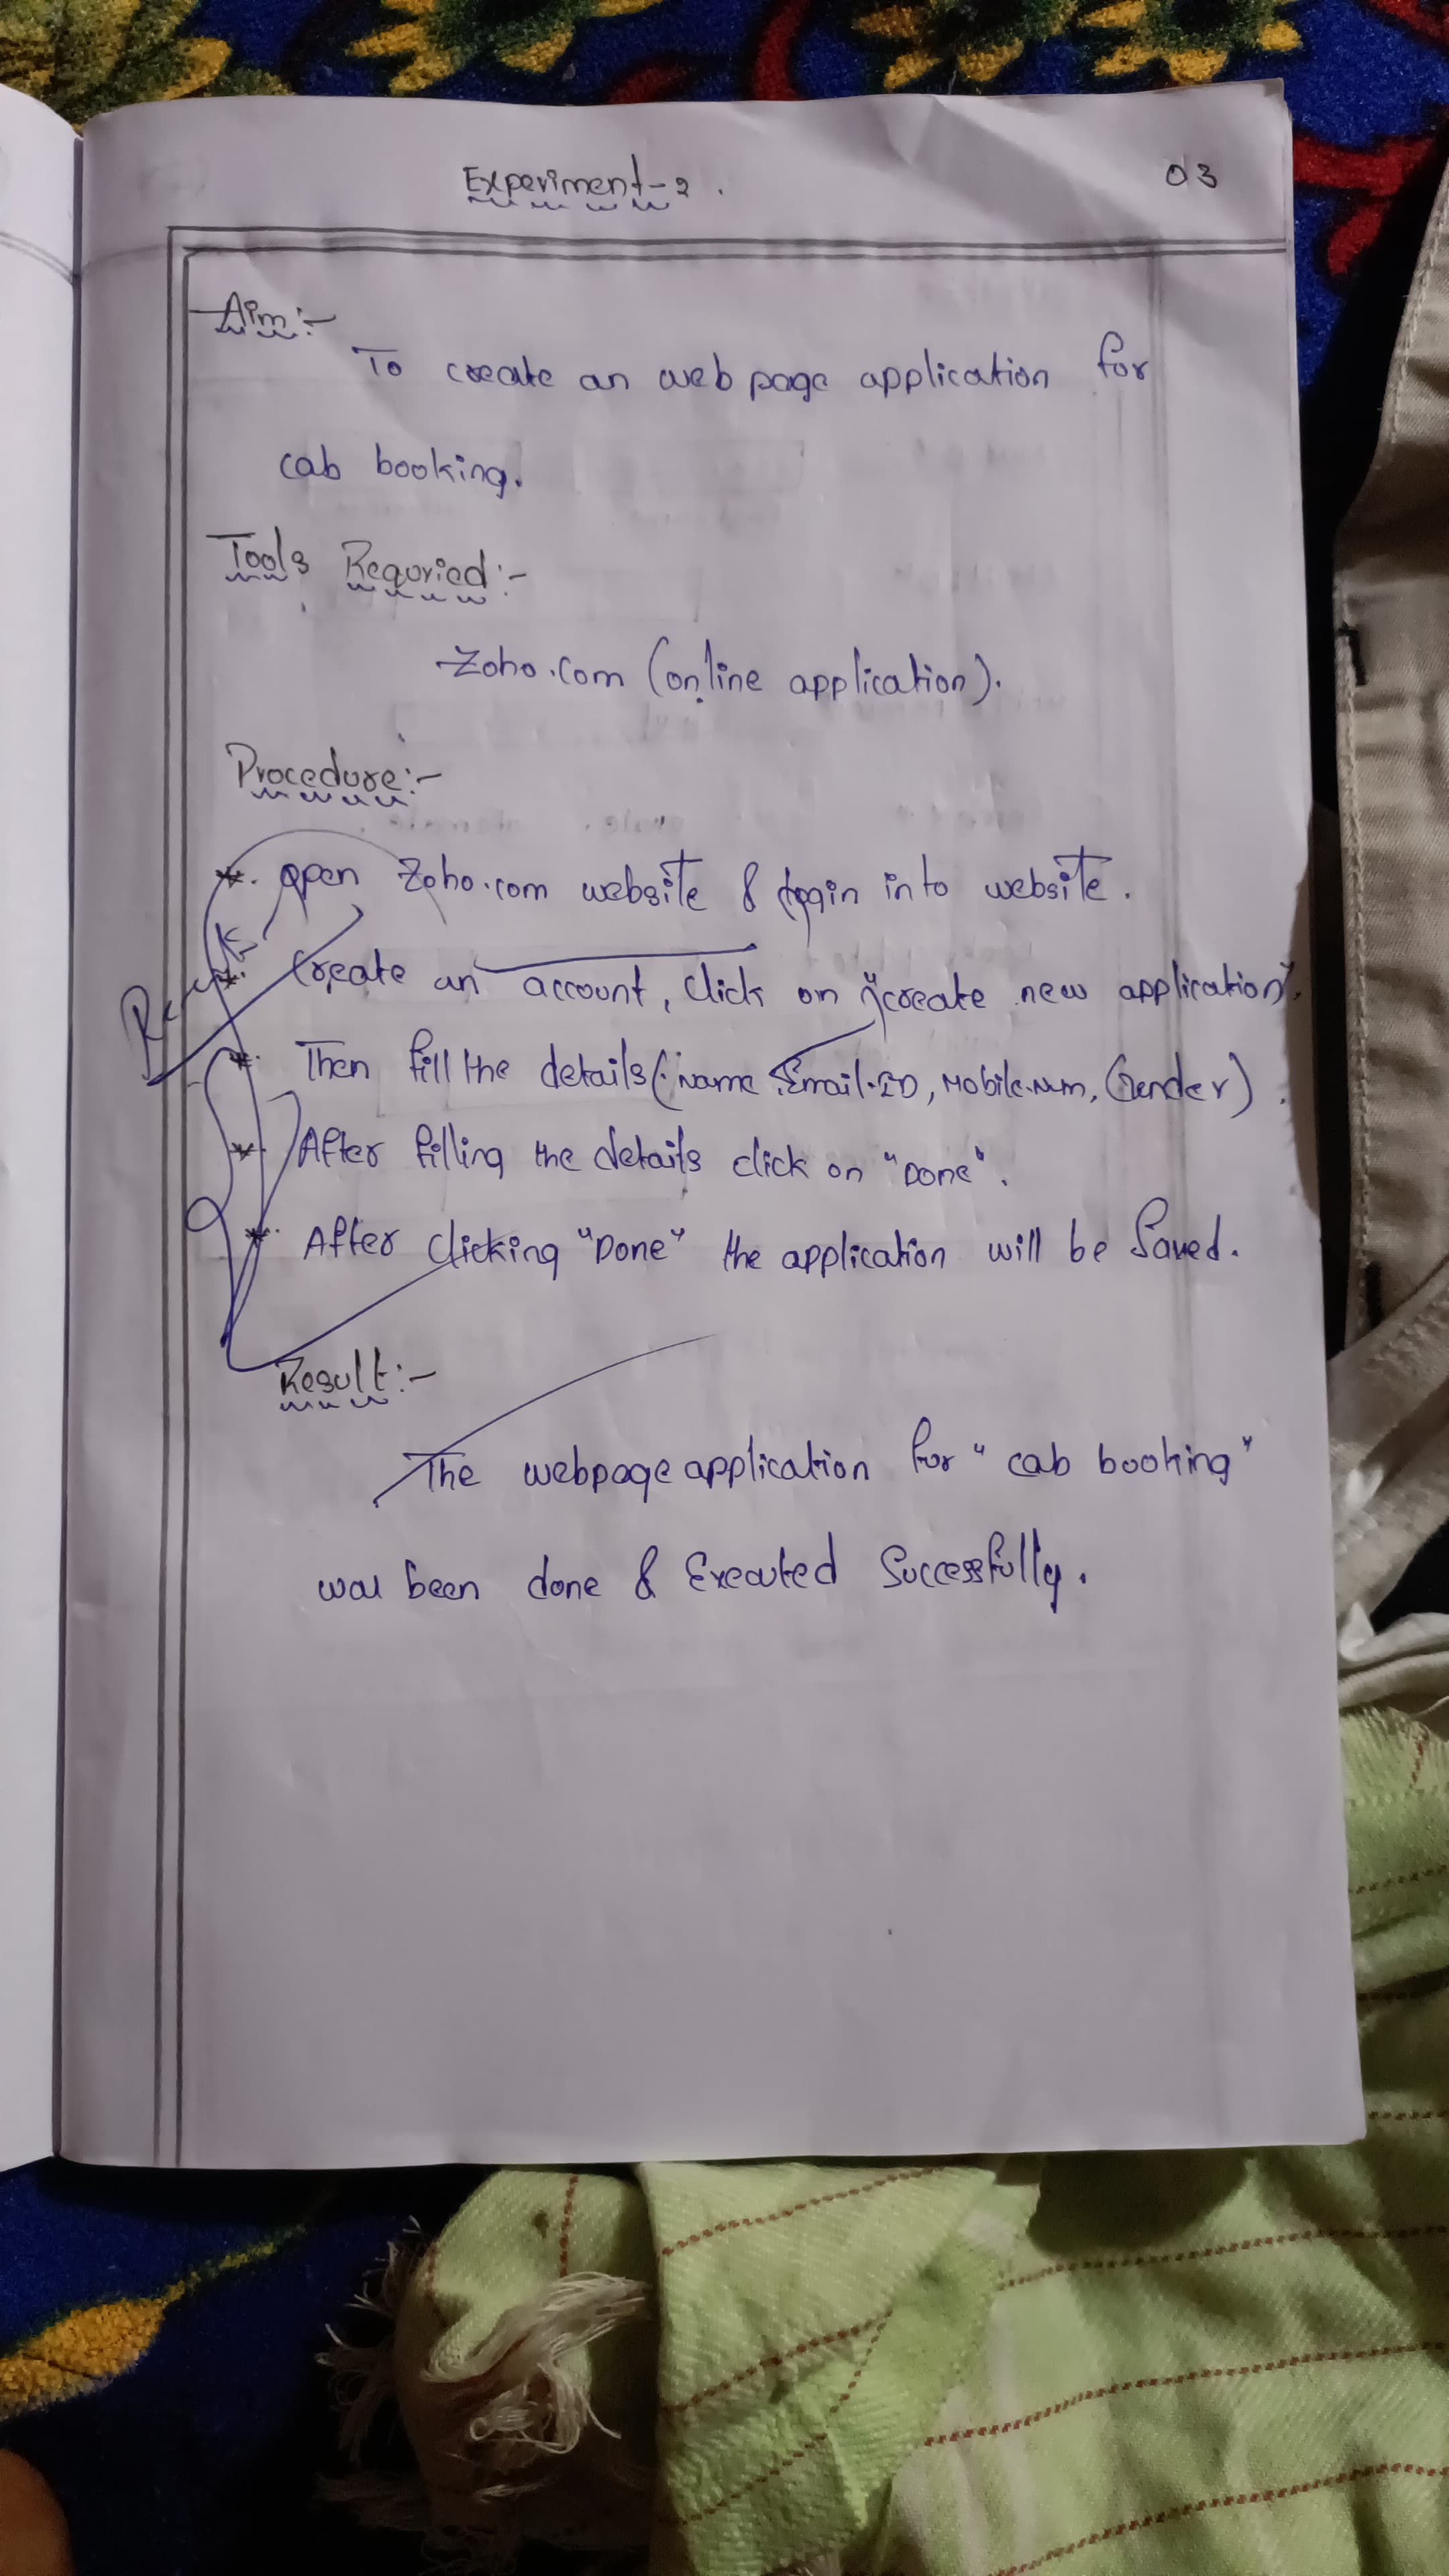 Experiment-2.
03
Aim:-
To create an web page application for
cab booking.
Tools Requried:-
Zoho.com (online application).
Procedure:-
*. open Zoho.com website & login into website.
*. Create an account, click on "create new application".
*. Then fill the details (Name, Email-ID, Mobile.Num, Gender).
*. After filling the details click on "Done".
*. After clicking "Done" the application will be Saved.
Result:-
The webpage application for "cab booking"
was been done & Executed Successfully.